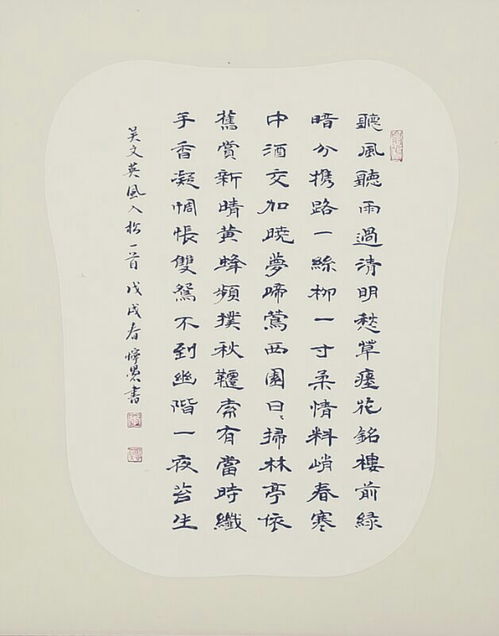 聽風聽雨過清明愁草瘞花銘樓前綠
暗分携路一絲柳一寸柔情料峭春寒
中酒交加曉夢啼鶯西園日〻掃林亭依
舊賞新晴黃蜂頻撲秋韆索有當時纖
手香凝惆悵雙鴛不到幽階一夜苔生
吴文英風入松一首戊戌春書